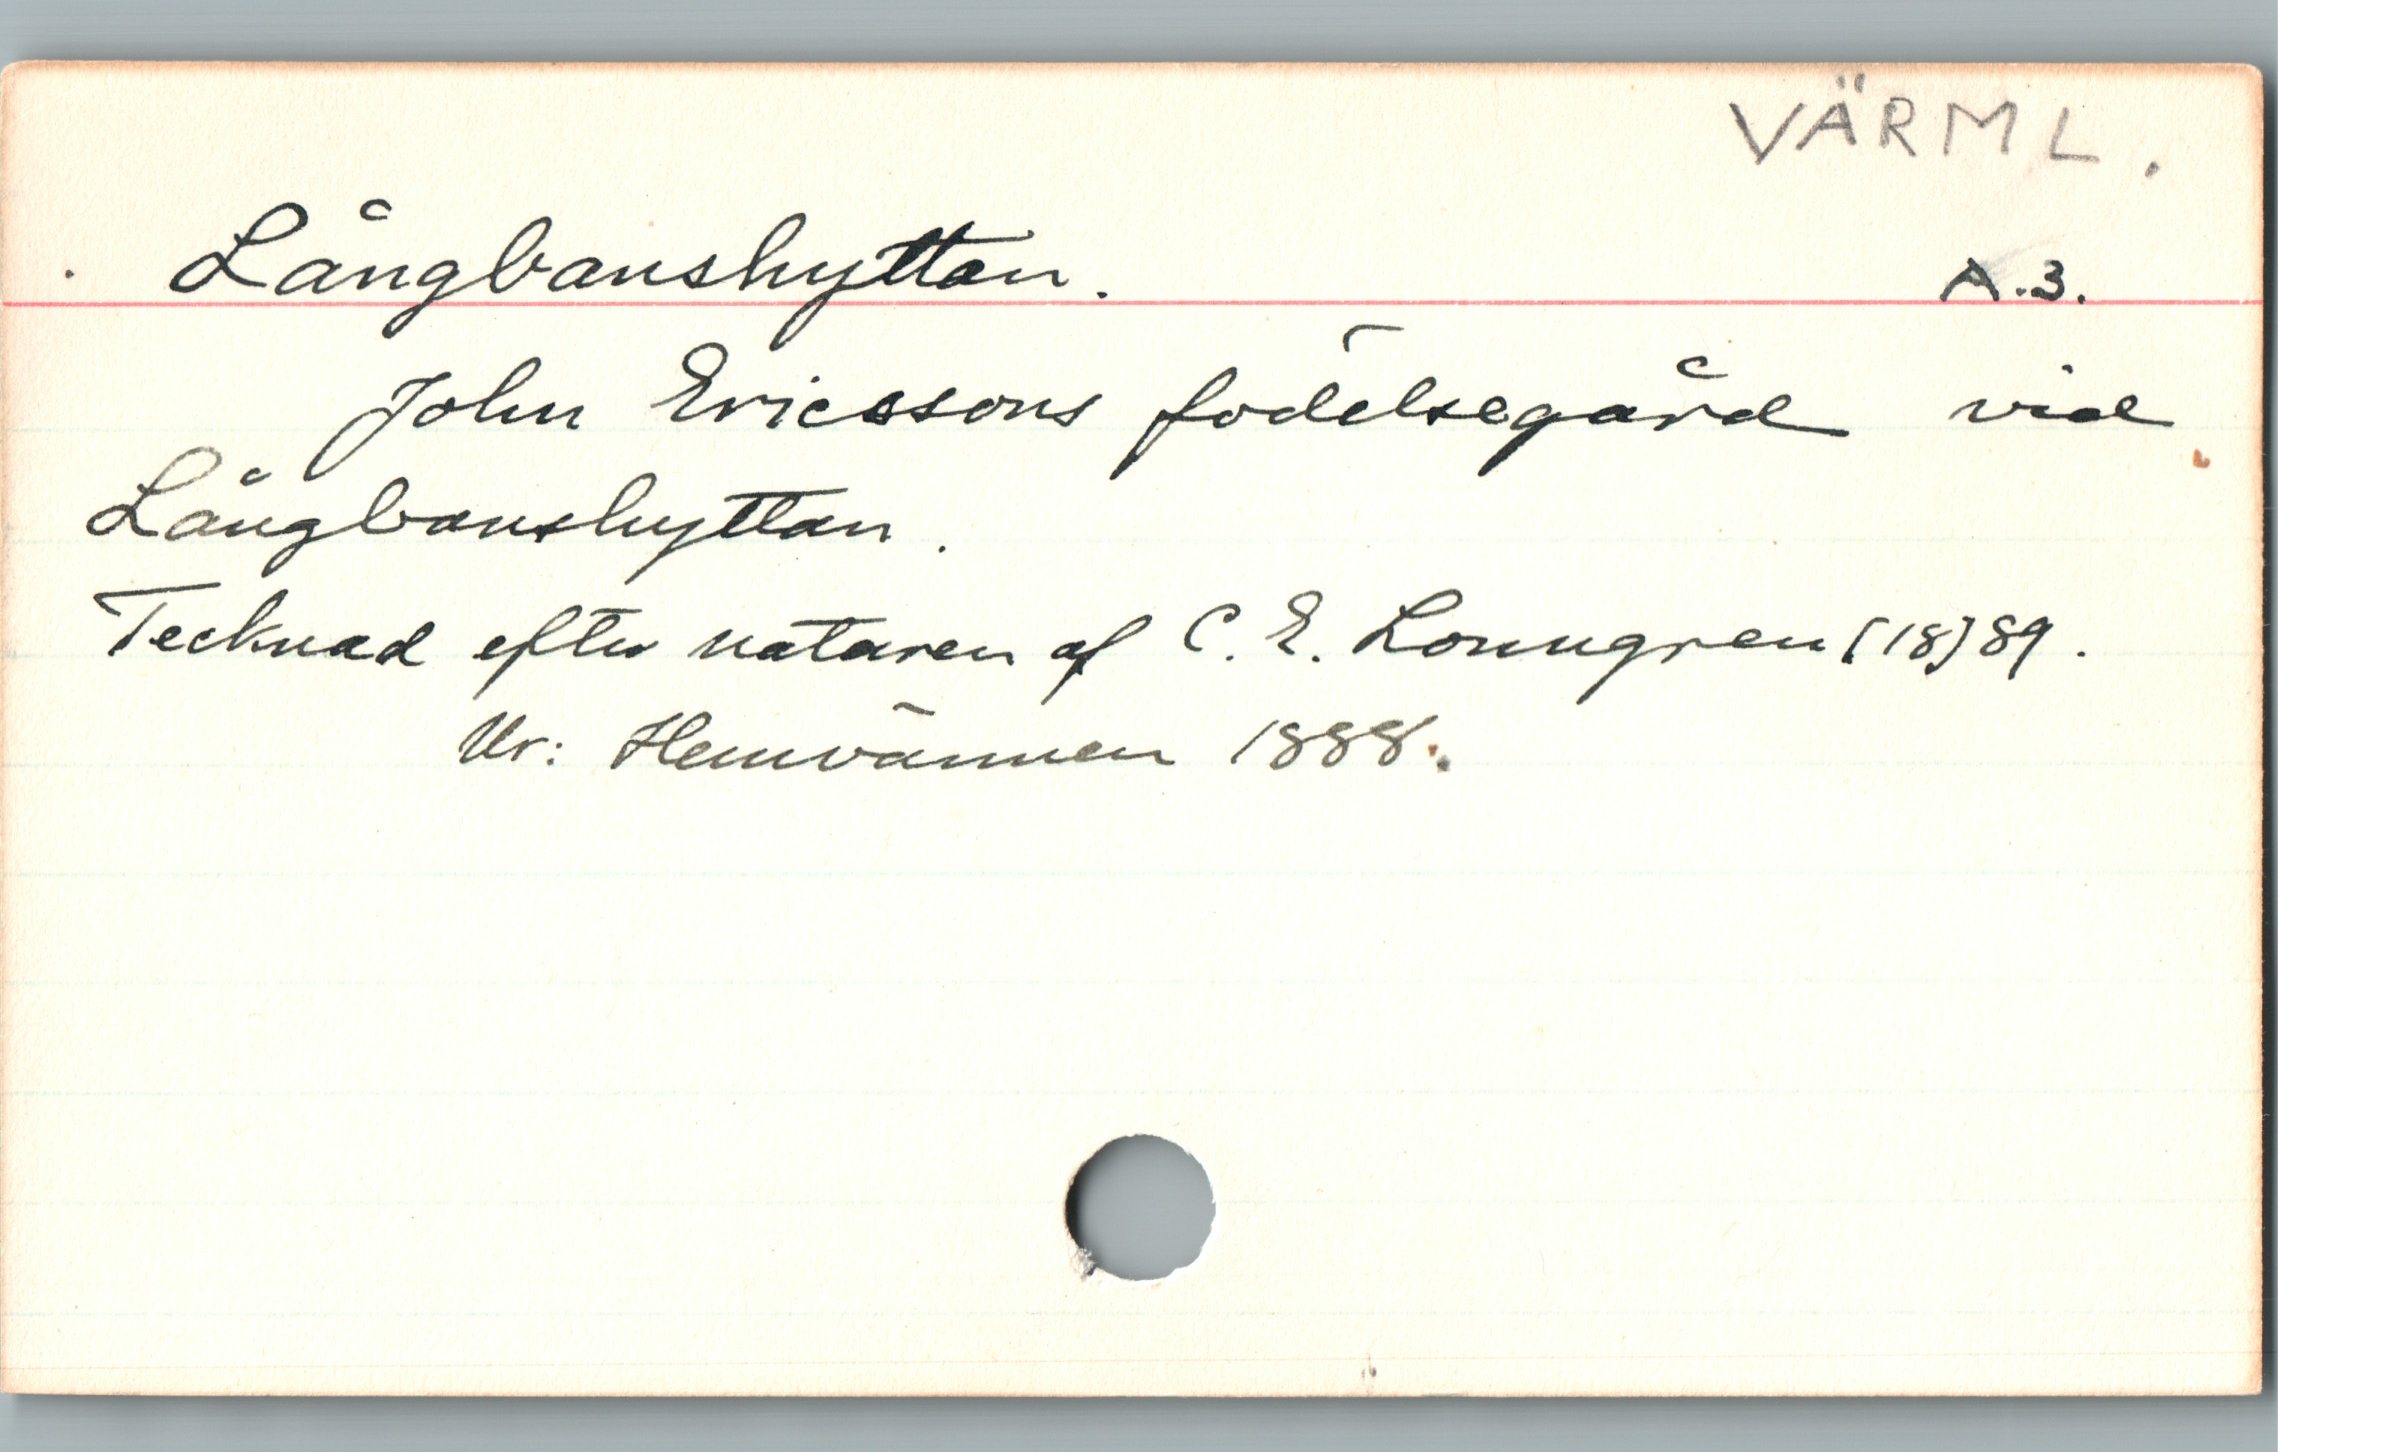 VÄRML.
Långbanshyttan.
A.3.
John Ericssons födelsegård vid
Långbanshyttan.
Tecknad efter nataren af C. E. Lonngren [18]89.
Ur: Hemvännen 1888.